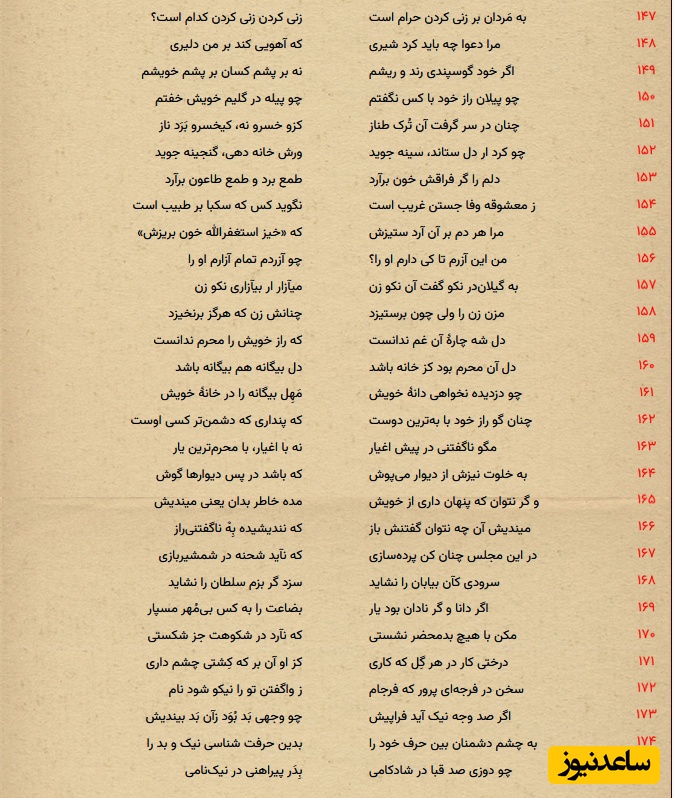 ۱۴۷ به مَردان بر زنی کردن حرام است زنی کردن زنی کردن کدام است؟
۱۴۸ مرا دعوا چه باید کرد شیری که آهویی کند بر من دلیری
۱۴۹ اگر خود گوسپندی رند و ریشم نه بر پشم کسان بر پشم خویشم
۱۵۰ چو پیلان راز خود با کس نگفتم چو پیله در گلیم خویش خفتم
۱۵۱ چنان در سر گرفت آن تُرک طناز کزو خسرو نه، کیخسرو بَرَد ناز
۱۵۲ چو کرد ار دل ستاند، سینه جوید ورش خانه دهی، گنجینه جوید
۱۵۳ دلم را گر فراقش خون برآرد طمع برد و طمع طاعون برآرد
۱۵۴ ز معشوقه وفا جستن غریب است نگوید کس که سکبا بر طبیب است
۱۵۵ مرا هر دم بر آن آرد ستیزش که «خیز استغفرالله خون بریزش»
۱۵۶ من این آزرم تا کی دارم او را؟ چو آزردم تمام آزارم او را
۱۵۷ به گیلان‌در نکو گفت آن نکو زن میآزار ار بیآزاری نکو زن
۱۵۸ مزن زن را ولی چون برستیزد چنانش زن که هرگز برنخیزد
۱۵۹ دل شه چارهٔ آن غم ندانست که راز خویش را محرم ندانست
۱۶۰ دل آن محرم بود کز خانه باشد دل بیگانه هم بیگانه باشد
۱۶۱ چو دزدیده نخواهی دانهٔ خویش مَهِل بیگانه را در خانهٔ خویش
۱۶۲ چنان گو راز خود با به‌ترین دوست که پنداری که دشمن‌تر کسی اوست
۱۶۳ مگو ناگفتنی در پیش اغیار نه با اغیار، با محرم‌ترین یار
۱۶۴ به خلوت نیزش از دیوار می‌پوش که باشد در پس دیوارها گوش
۱۶۵ و گر نتوان که پنهان داری از خویش مده خاطر بدان یعنی میندیش
۱۶۶ میندیش آن چه نتوان گفتنش باز که نندیشیده بِهْ ناگفتنی‌راز
۱۶۷ در این مجلس چنان کن پرده‌سازی که نآید شحنه در شمشیربازی
۱۶۸ سرودی کآن بیابان را نشاید سزد گر بزم سلطان را نشاید
۱۶۹ اگر دانا و گر نادان بود یار بضاعت را به کس بی‌مُهر مسپار
۱۷۰ مکن با هیچ بدمحضر نشستی که نآرد در شکوهت جز شکستی
۱۷۱ درختی کار در هر گِل که کاری کز او آن بر که کِشتی چشم داری
۱۷۲ سخن در فرجه‌ای پرور که فرجام ز واگفتن تو را نیکو شود نام
۱۷۳ اگر صد وجه نیک آید فراپیش چو وجهی بَد بُوَد زآن بَد بیندیش
۱۷۴ به چشم دشمنان بین حرف خود را بدین حرفت شناسی نیک و بد را
چو دوزی صد قبا در شادکامی بِدَر پیراهنی در نیک‌نامی
ساعدنیوز